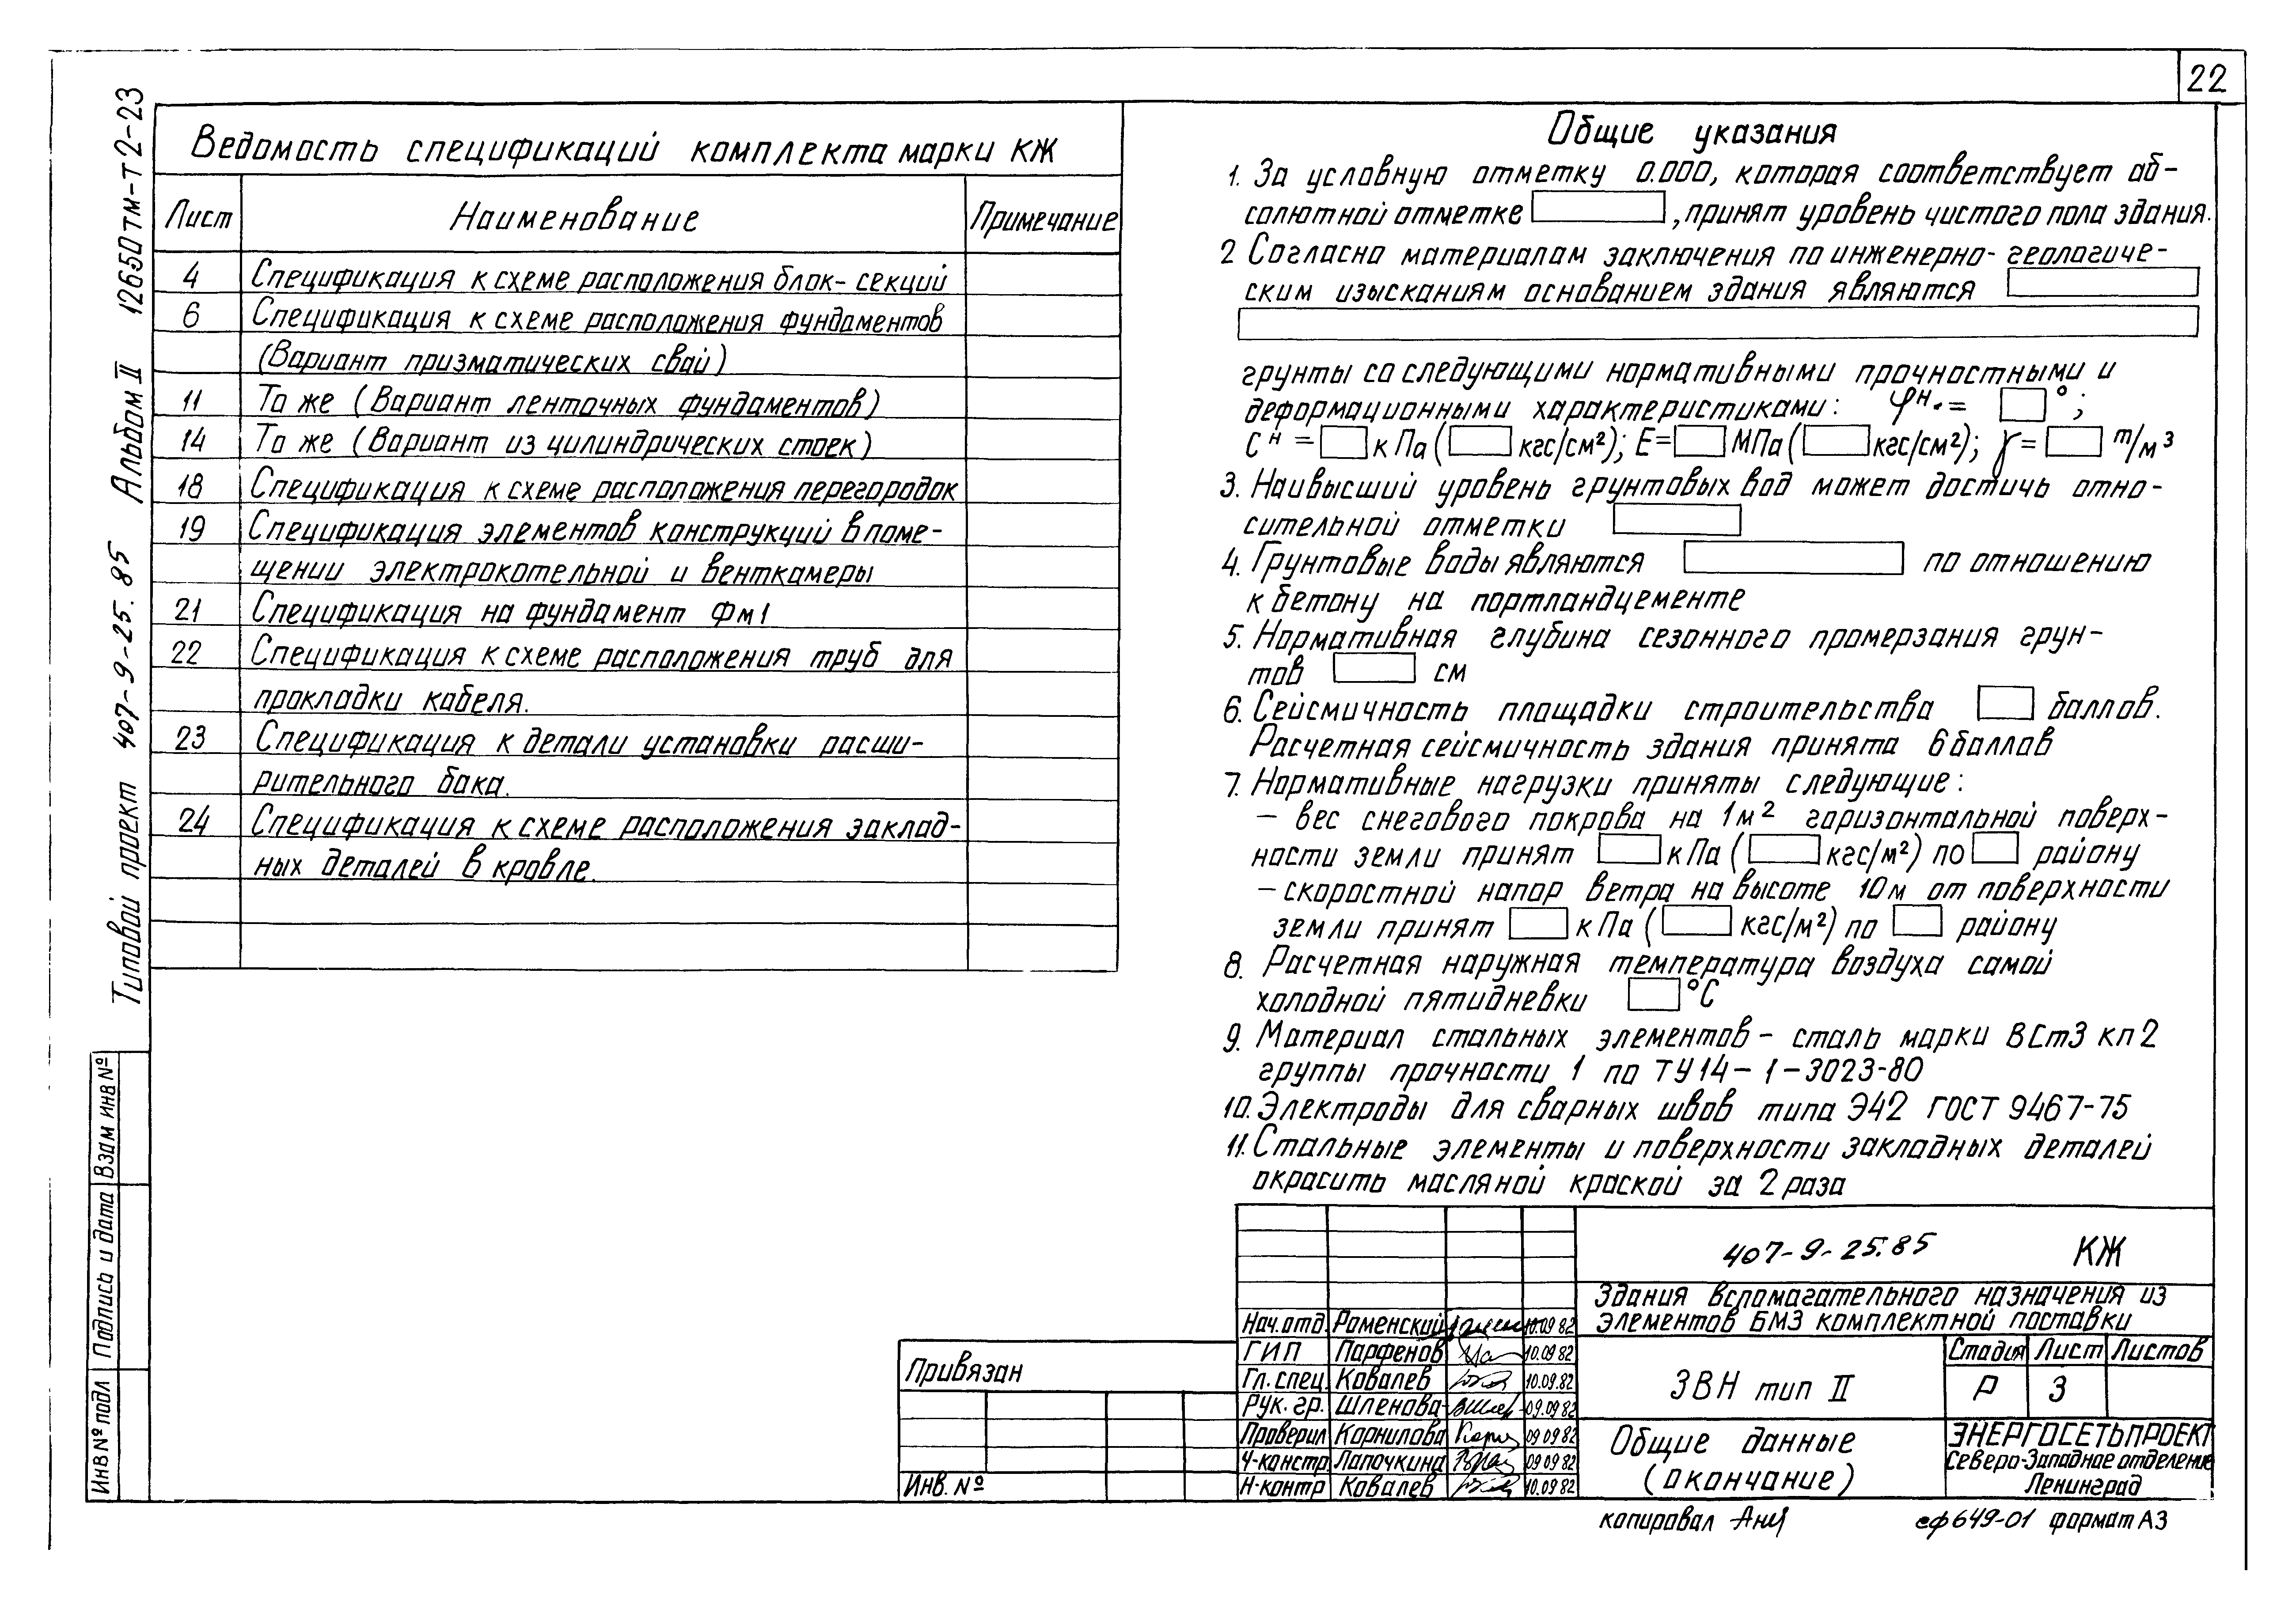 22
Типовой проект 407-9-25.85 Альбом II 12650тм-т2-23
Ведомость спецификаций комплекта марки КЖ
Лист Наименование Примечание
4 Спецификация к схеме расположения блок-секций
6 Спецификация к схеме расположения фундаментов
(Вариант призматических свай)
11 То же (Вариант ленточных фундаментов)
14 То же (Вариант из цилиндрических стоек)
18 Спецификация к схеме расположения перегородок
19 Спецификация элементов конструкций в поме-
щении электрокотельной и венткамеры
21 Спецификация на фундамент Фм1
22 Спецификация к схеме расположения труб для
прокладки кабеля.
23 Спецификация к детали установки расши-
рительного бака.
24 Спецификация к схеме расположения заклад-
ных деталей в кровле.
Общие указания
1. За условную отметку 0.000, которая соответствует аб-
солютной отметке , принят уровень чистого пола здания.
2 Согласно материалам заключения по инженерно-геологиче-
ским изысканиям основанием здания являются
грунты со следующими нормативными прочностными и
деформационными характеристиками: φн.= °;
Cн = кПа ( кгс/см²); E= МПа ( кгс/см²); γ= т/м³
3. Наивысший уровень грунтовых вод может достичь отно-
сительной отметки
4. Грунтовые воды являются по отношению
к бетону на портландцементе
5. Нормативная глубина сезонного промерзания грун-
тов см
6. Сейсмичность площадки строительства баллов.
Расчетная сейсмичность здания принята 6 баллов
7. Нормативные нагрузки приняты следующие:
– вес снегового покрова на 1м² горизонтальной поверх-
ности земли принят кПа ( кгс/м²) по району
– скоростной напор ветра на высоте 10м от поверхности
земли принят кПа ( кгс/м²) по району
8. Расчетная наружная температура воздуха самой
холодной пятидневки °С
9. Материал стальных элементов – сталь марки ВСт3 кп2
группы прочности 1 по ТУ14-1-3023-80
10. Электроды для сварных швов типа Э42 ГОСТ 9467-75
11. Стальные элементы и поверхности закладных деталей
окрасить масляной краской за 2 раза
Инв № подл Подпись и дата Взам инв №
Привязан
Инв. №
Нач.отд. Роменский 10.09 82
ГИП Парфенов 10.09 82
Гл. спец. Ковалев 10.09.82
Рук. гр. Шленова 09.09 82
Проверил Корнилова 09 09 82
Ч-констр. Лапочкина 09 09 82
Н-контр Ковалев 10.09 82
407-9-25.85 КЖ
Здания вспомагательного назначения из
элементов БМЗ комплектной поставки
ЗВН тип II
Стадия Лист Листов
Р 3
Общие данные
(окончание)
ЭНЕРГОСЕТЬПРОЕКТ
Северо-Западное отделение
Ленинград
копировал
сф649-01 формат А3